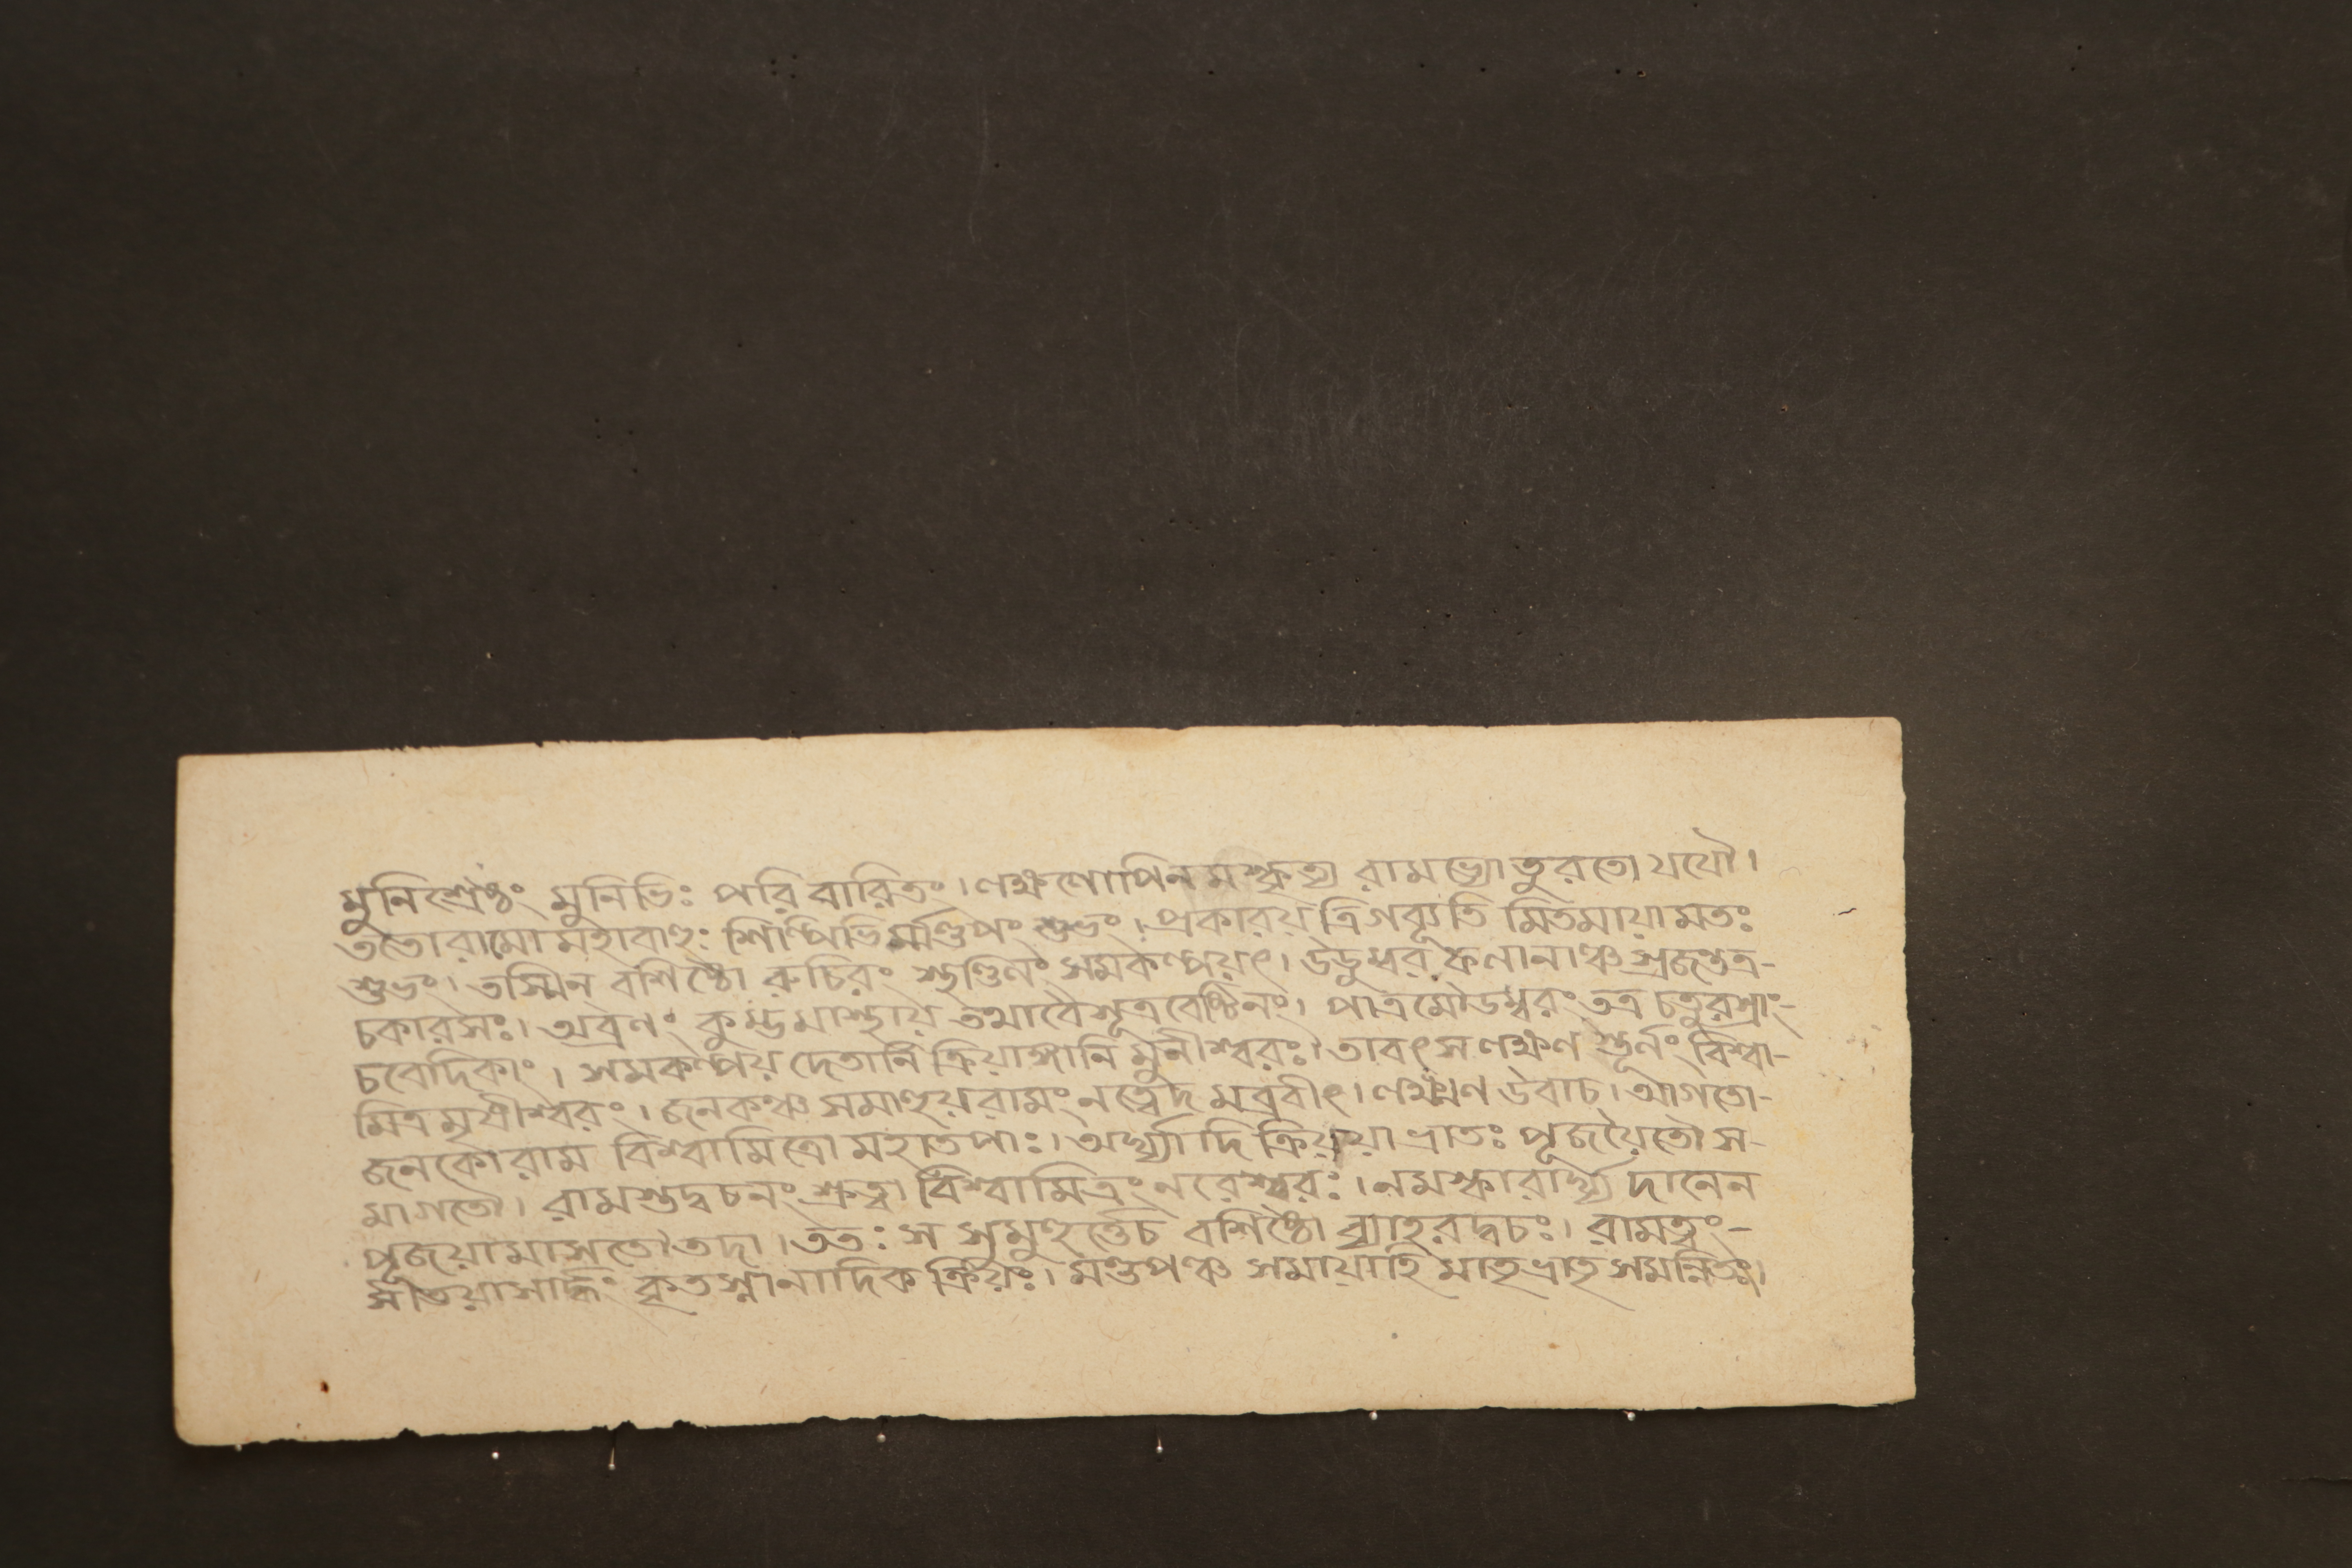 মুনিশ্রেষ্ঠং মুনিভিঃ পরিবারিতং। লক্ষ্মণোপিনমস্কৃত্য রামভ্যোতুরতো যযৌ।
ততোরামোমহাবাহুঃ শিল্পিভির্ম্মণ্ডপং শুভং। প্রকারয় ত্রিগব্যূতি মিতমায়ামতঃ
শুভং। তস্মিন বশিষ্ঠো রুচিরং স্থণ্ডিলং সমকল্পয়ৎ। উডুম্বর ফলানাঞ্চ স্রজস্তত্র-
চকারসঃ। অব্রণং কুম্ভমাস্থায় তথাবৈসূত্রবেষ্টিনং। পাত্রমৌডম্বরং তত্র চতুরস্রাং-
চবেদিকাং। সমকল্পয় দেতানি ক্রিয়াঙ্গানি মুনীশ্বরঃ। তাবৎ স লক্ষ্মণ স্তূর্নং বিশ্বা-
মিত্র মৃষীশ্বরং। জনকঞ্চ সমাহুয়রামং নত্বেদ মব্রবীৎ। লক্ষ্মণ উবাচ। আগতো-
জনকোরাম বিশ্বামিত্রো মহাতপাঃ। অর্ঘ্যাদি ক্রিয়য়া ভ্রাতঃ পূজয়ৈতৌ স-
মাগতৌ। রামস্তদ্বচনং শ্রুত্বা বিশ্বামিত্রং নরেশ্বরঃ। নমস্কারার্ঘ্য দানেন
পূজয়ামাসতৌতদা। ততঃ স সুমুহুর্ত্তেচ বশিষ্ঠো ব্যাহরদ্বচঃ। রামত্বং-
সীতয়াসার্দ্ধং কৃতস্নানাদিক ক্রিয়ঃ। মণ্ডপঞ্চ সমায়াহি মাতৃভ্রাতৃ সমন্বিতঃ।